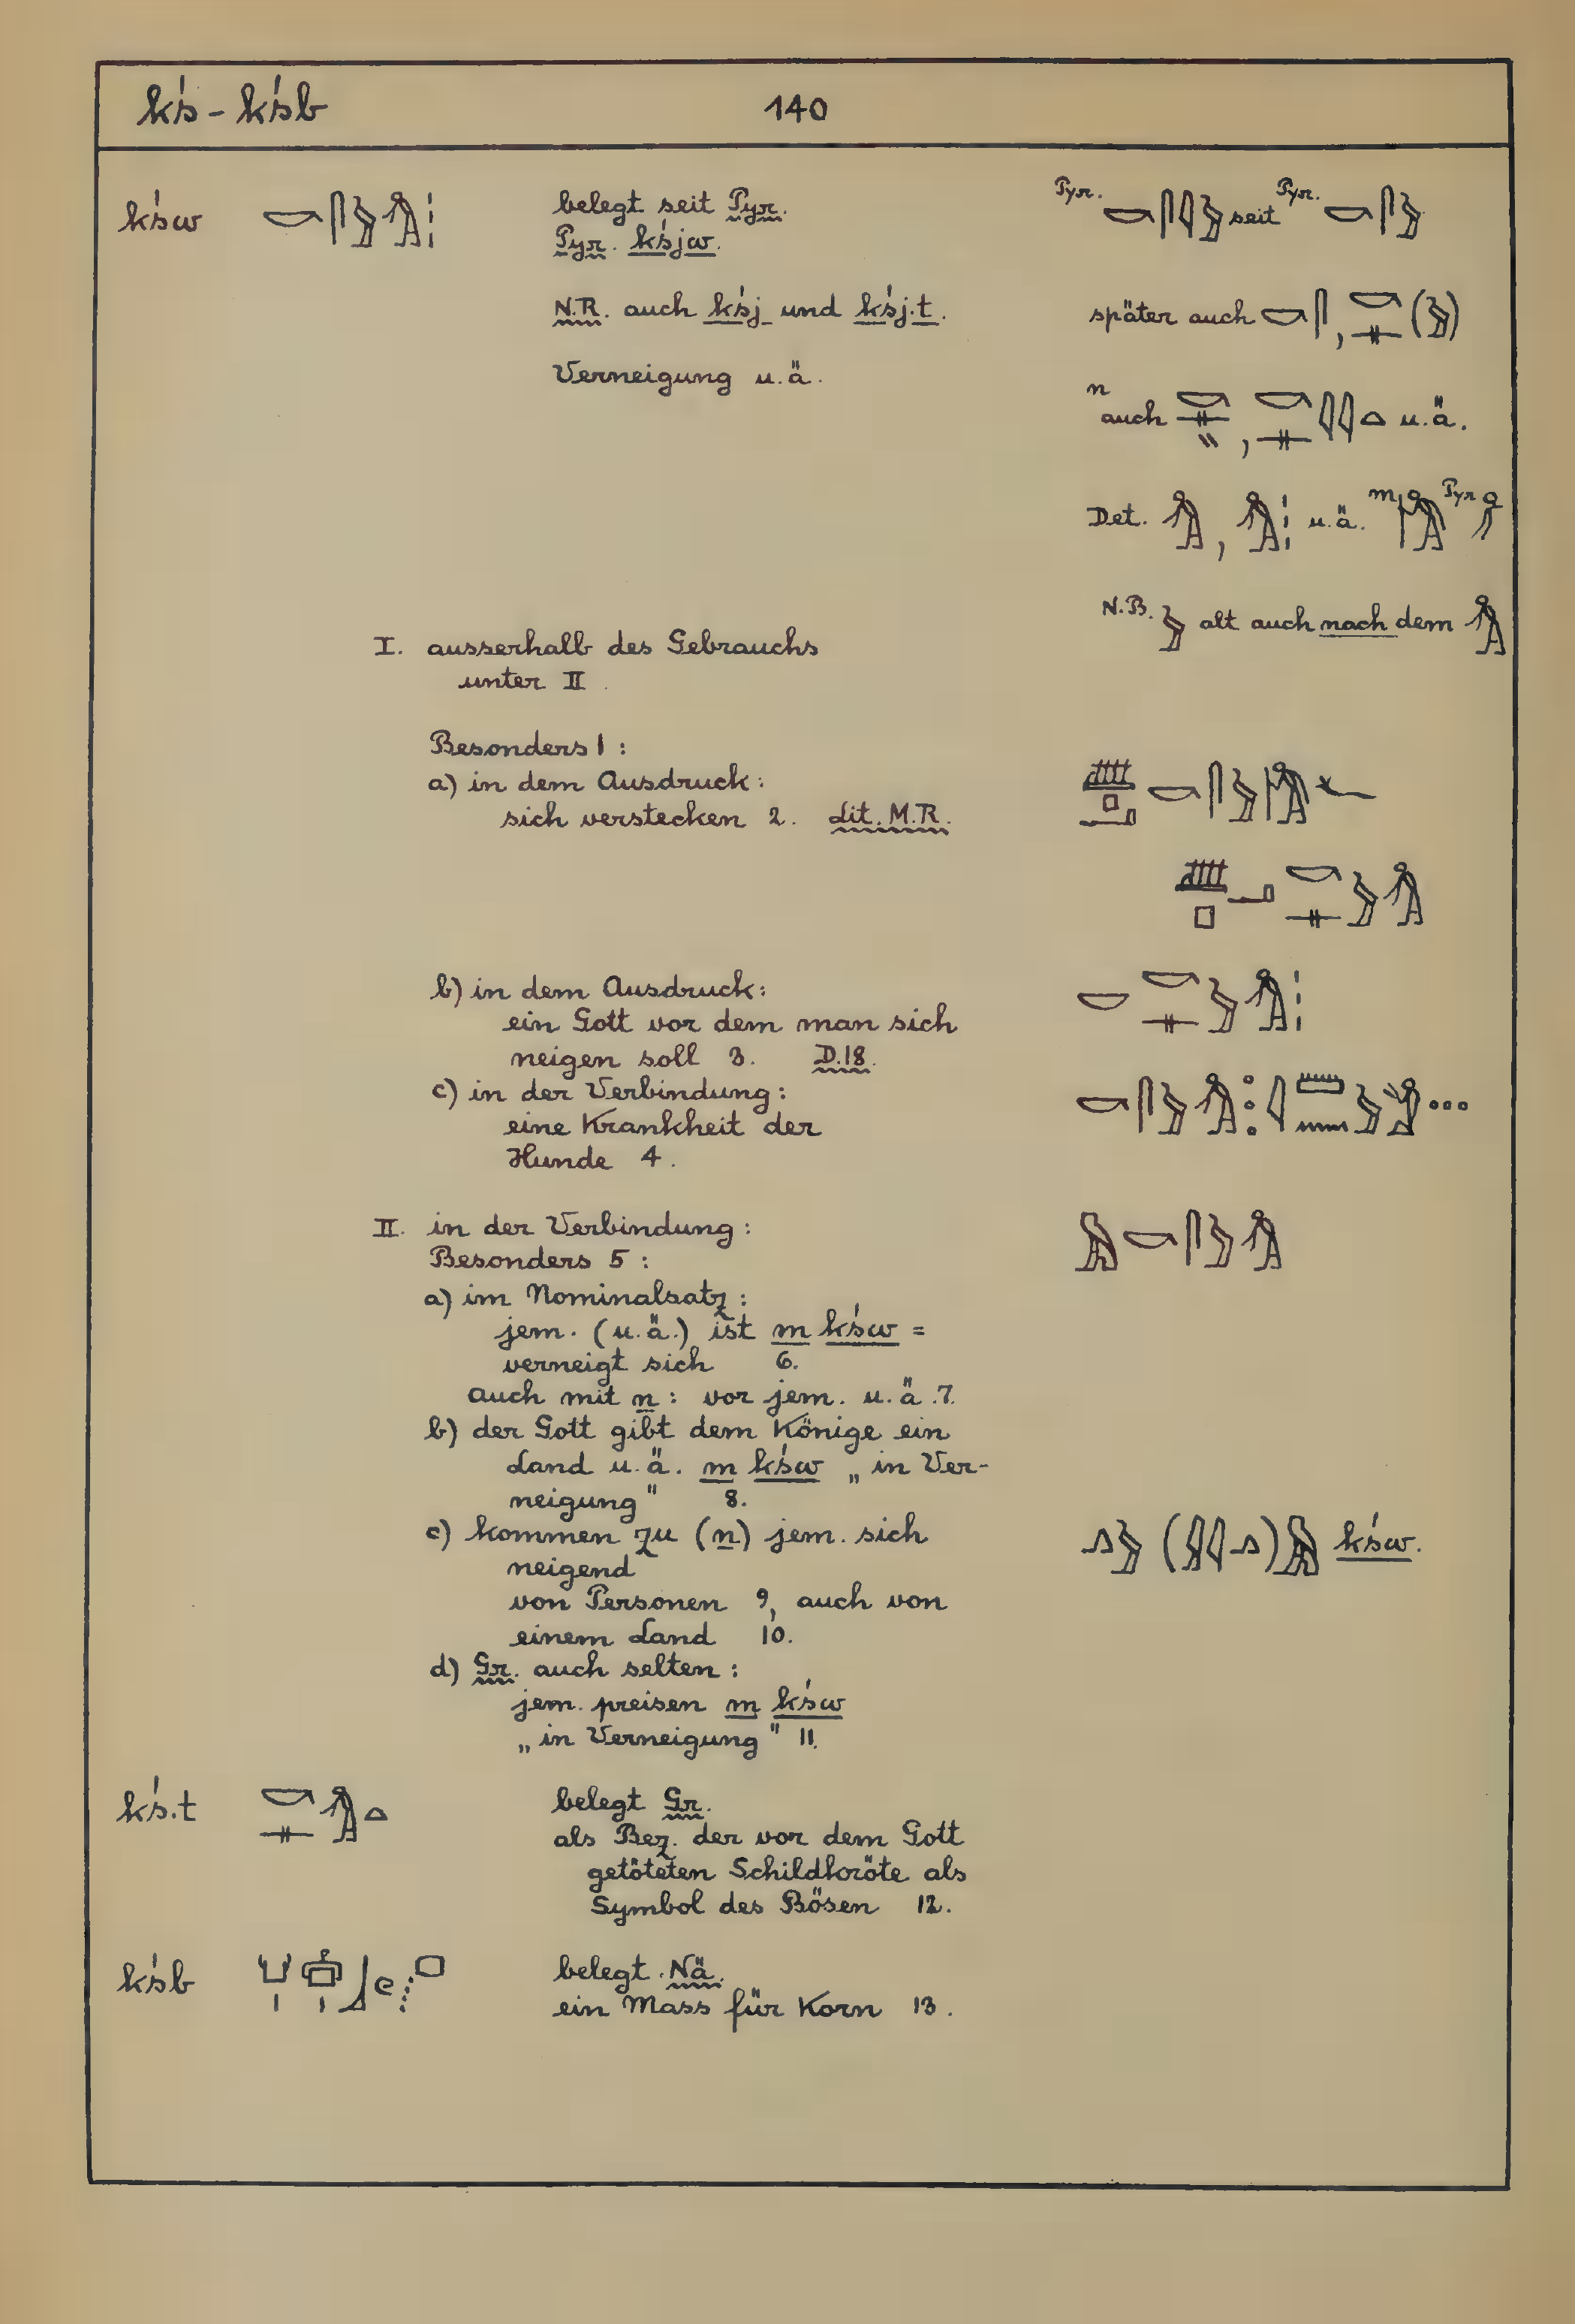 kś - kśb
140
kśw
belegt seit Pyr.
Pyr. kśjw.
N.R. auch kśj und kśj.t.
Verneigung u.ä.
Pyr. seit Pyr.
später auch , ( )
n auch , u.ä.
Det. , u.ä. m Pyr
N.B. alt auch nach dem
I. ausserhalb des Gebrauchs
unter II.
Besonders 1 :
a) in dem Ausdruck:
sich verstecken 2. Lit. M.R.
b) in dem Ausdruck:
ein Gott vor dem man sich
neigen soll 3. D.18.
c) in der Verbindung:
eine Krankheit der
Hunde 4.
II. in der Verbindung:
Besonders 5 :
a) im Nominalsatz:
jem. (u.ä.) ist m kśw =
verneigt sich 6.
auch mit n: vor jem. u.ä. 7.
b) der Gott gibt dem Könige ein
Land u.ä. m kśw „in Ver-
neigung" 8.
c) kommen zu (n) jem. sich
neigend
( ) kśw.
von Personen 9, auch von
einem Land 10.
d) Gr. auch selten:
jem. preisen m kśw
„in Verneigung" 11.
kś.t
belegt Gr.
als Bez. der vor dem Gott
getöteten Schildkröte als
Symbol des Bösen 12.
kśb
belegt Nä.
ein Mass für Korn 13.